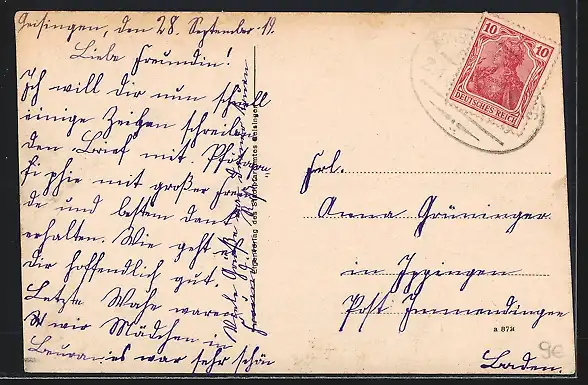 Geisingen, den 28. September 19.
Liebe Freundin!
Ich will dir nun schnell
einige Zeilen schreiben
den Brief mit. Photogra
fi phie mit großer Freu
de und bestem Dank
erhalten. Wie geht es
dir hoffendlich gut.
Letzte Wahe waren
wir Mädchen in
Beuran: es war sehr schön
Viele Grüße
Eigenverlag des Stadtpfarramtes Geisingen
10 10
DEUTSCHES REICH
Frl.
Anna Grüninger
in Ippingen
Post Immendingen
Baden.
a 878
9€